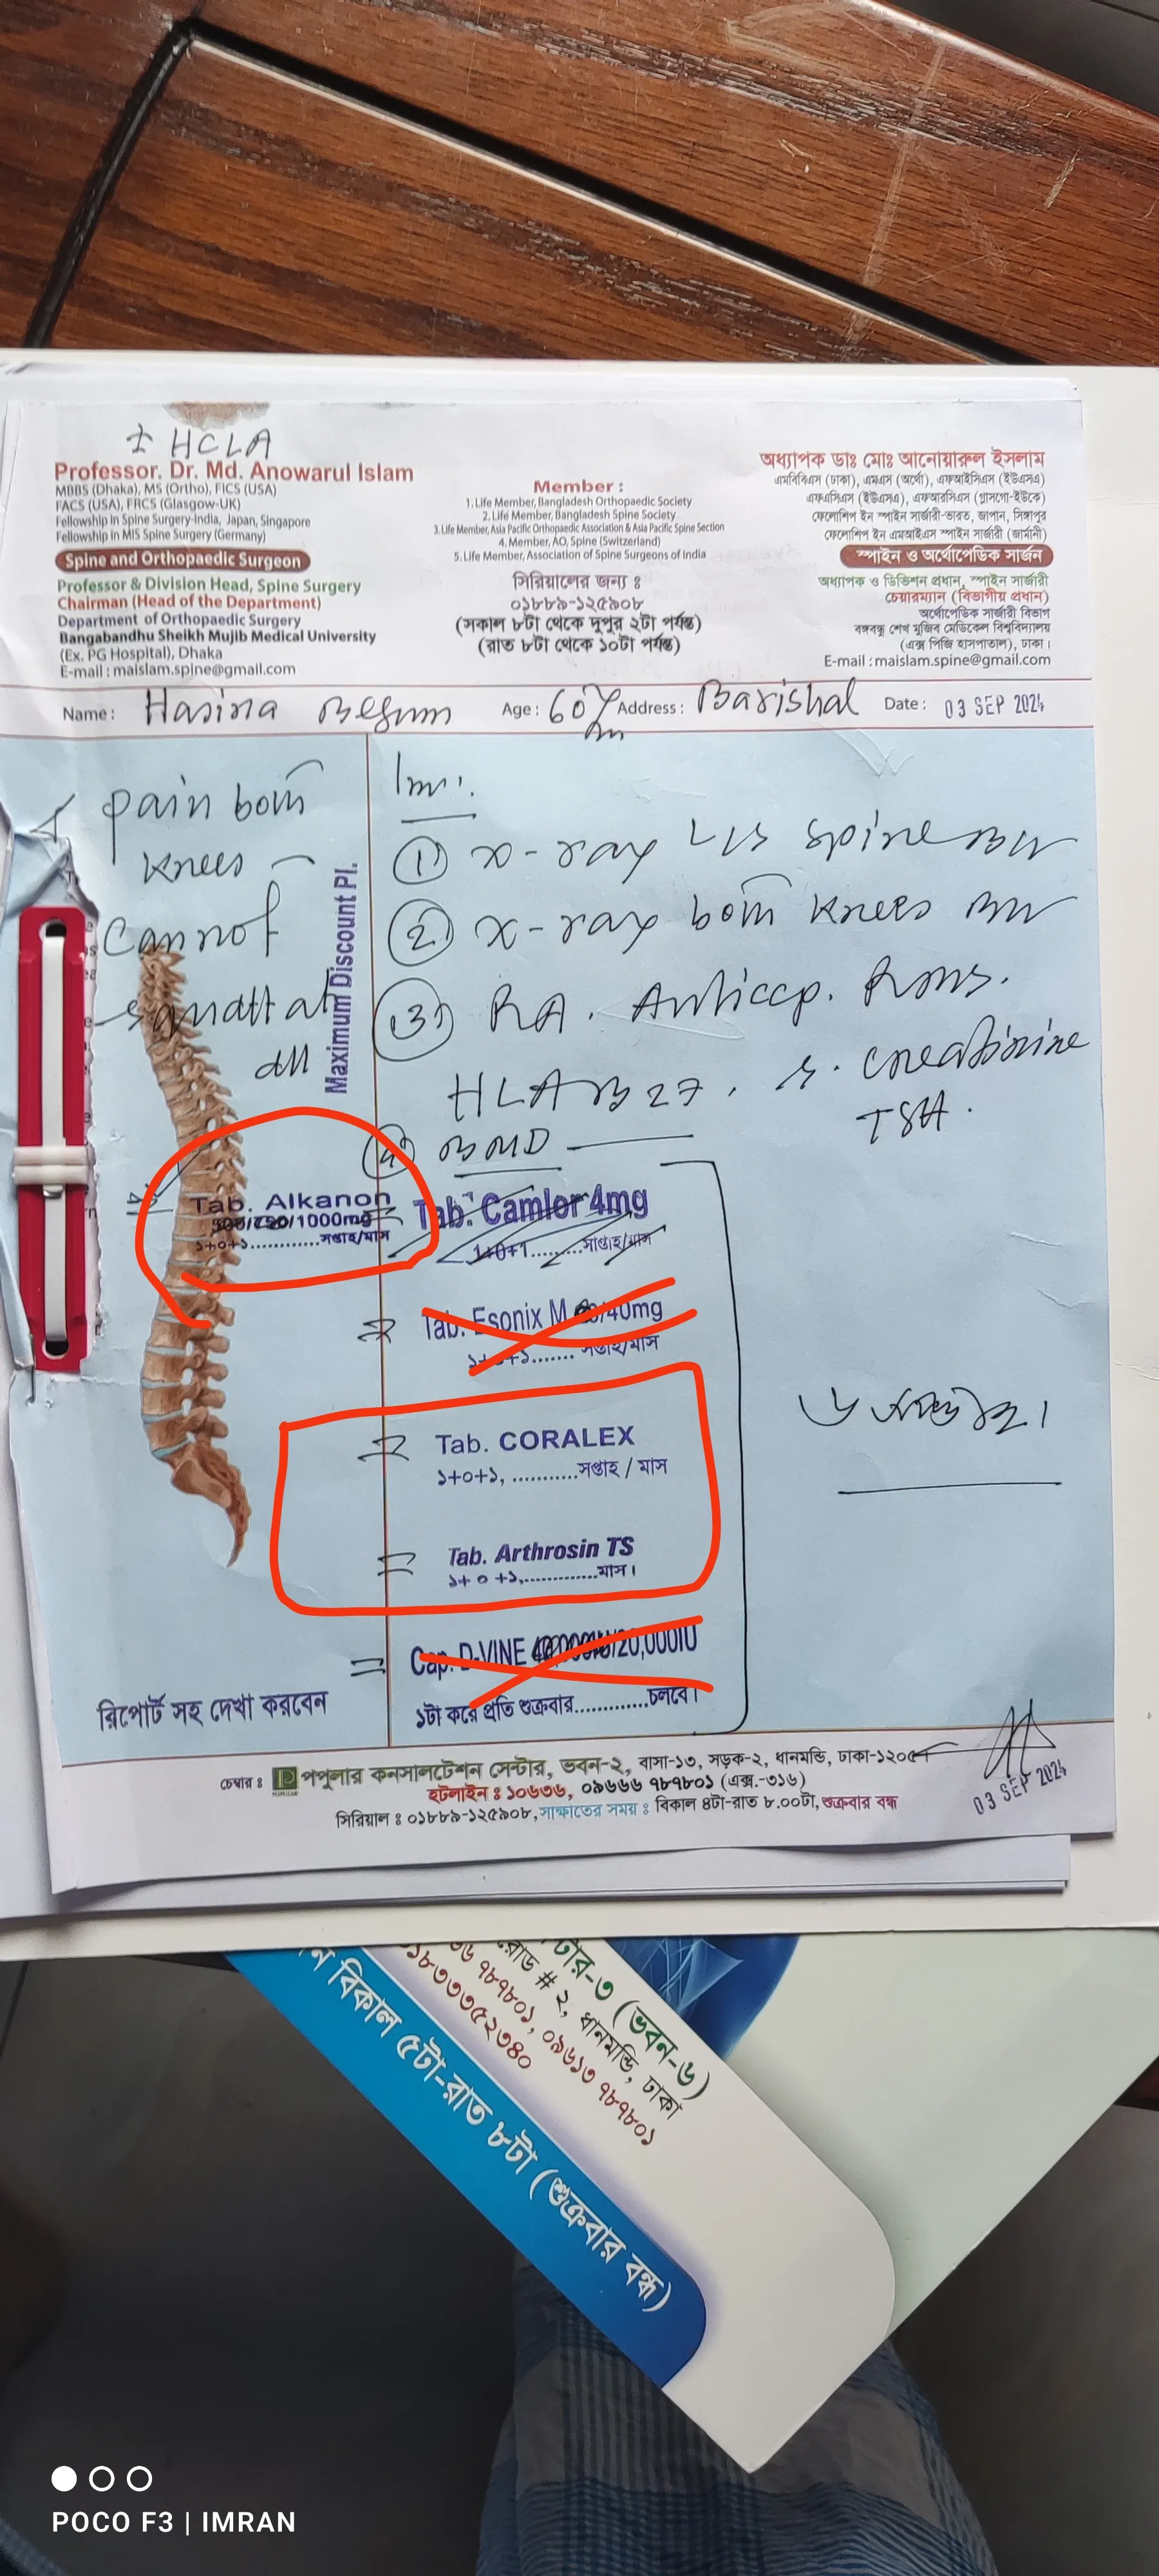 ± HCLA
Professor. Dr. Md. Anowarul Islam
MBBS (Dhaka), MS (Ortho), FICS (USA)
FACS (USA), FRCS (Glasgow-UK)
Fellowship in Spine Surgery-India, Japan, Singapore
Fellowship in MIS Spine Surgery (Germany)
Spine and Orthopaedic Surgeon
Professor & Division Head, Spine Surgery
Chairman (Head of the Department)
Department of Orthopaedic Surgery
Bangabandhu Sheikh Mujib Medical University
(Ex. PG Hospital), Dhaka
E-mail : maislam.spine@gmail.com
Member :
1. Life Member, Bangladesh Orthopaedic Society
2. Life Member, Bangladesh Spine Society
3. Life Member, Asia Pacific Orthopaedic Association & Asia Pacific Spine Section
4. Member, AO, Spine (Switzerland)
5. Life Member, Association of Spine Surgeons of India
সিরিয়ালের জন্য ঃ
০১৮৮৯-১২৫৯০৮
(সকাল ৮টা থেকে দুপুর ২টা পর্যন্ত)
(রাত ৮টা থেকে ১০টা পর্যন্ত)
অধ্যাপক ডাঃ মোঃ আনোয়ারুল ইসলাম
এমবিবিএস (ঢাকা), এমএস (অর্থো), এফআইসিএস (ইউএসএ)
এফএসিএস (ইউএসএ), এফআরসিএস (গ্লাসগো-ইউকে)
ফেলোশিপ ইন স্পাইন সার্জারী-ভারত, জাপান, সিঙ্গাপুর
ফেলোশিপ ইন এমআইএস স্পাইন সার্জারী (জার্মানী)
স্পাইন ও অর্থোপেডিক সার্জন
অধ্যাপক ও ডিভিশন প্রধান, স্পাইন সার্জারী
চেয়ারম্যান (বিভাগীয় প্রধান)
অর্থোপেডিক সার্জারী বিভাগ
বঙ্গবন্ধু শেখ মুজিব মেডিকেল বিশ্ববিদ্যালয়
(এক্স পিজি হাসপাতাল), ঢাকা।
E-mail : maislam.spine@gmail.com
Name : Hasina Begum Age : 60 Address : Barishal Date : 03 SEP 2024
pain both
knees
cannot
at
all
Maximum Discount Pl.
Inv:
① x-ray L/S spine B/V
② x-ray both knees B/V
③ RA. Anticcp.
HLA B 27, S. creatinine
TSH.
④ BMD
Tab. Alkanon
500/750/1000mg
১+০+১............সপ্তাহ/মাস
Tab. Camlor 4mg
1+0+1.........সাপ্তাহ/মাস
Tab. Esonix M /40mg
১+০+১....... সপ্তাহ/মাস
Tab. CORALEX
১+০+১, ...........সপ্তাহ / মাস
Tab. Arthrosin TS
১+ ০ +১,.............মাস।
Cap. D-VINE 40,000IU/20,000IU
১টা করে প্রতি শুক্রবার............চলবে।
৬ সপ্তাহ।
রিপোর্ট সহ দেখা করবেন
03 SEP 2024
চেম্বার ঃ পপুলার কনসালটেশন সেন্টার, ভবন-২, বাসা-১৩, সড়ক-২, ধানমন্ডি, ঢাকা-১২০৫
হটলাইন ঃ ১০৬৩৬, ০৯৬৬৬ ৭৮৭৮০১ (এক্স.-৩১৬)
সিরিয়াল ঃ ০১৮৮৯-১২৫৯০৮, সাক্ষাতের সময় ঃ বিকাল ৪টা-রাত ৮.০০টা, শুক্রবার বন্ধ
টার-৩ (ভবন-৬)
রোড # ২, ধানমন্ডি, ঢাকা
৬৬ ৭৮৭৮০১, ০৯৬১৩ ৭৮৭৮০১
০১৮৩৩৩৫২৩৪০
ন বিকাল ৫টা-রাত ৮টা (শুক্রবার বন্ধ)
POCO F3 | IMRAN